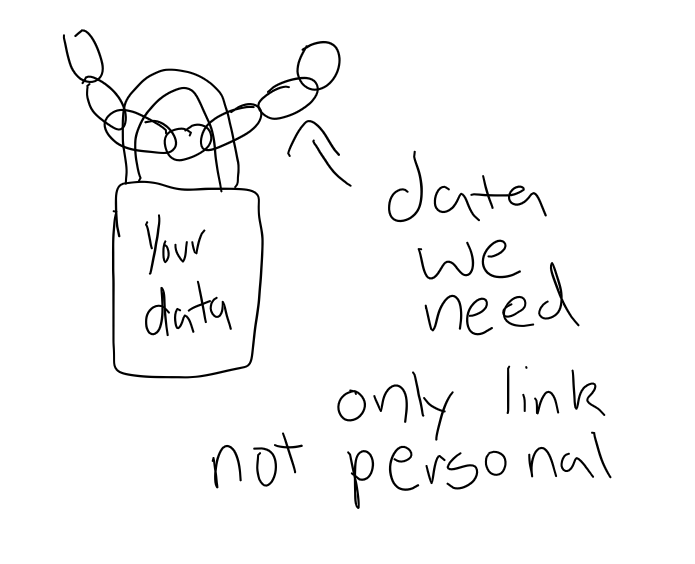 Your
data
data
we
need
only link
not personal